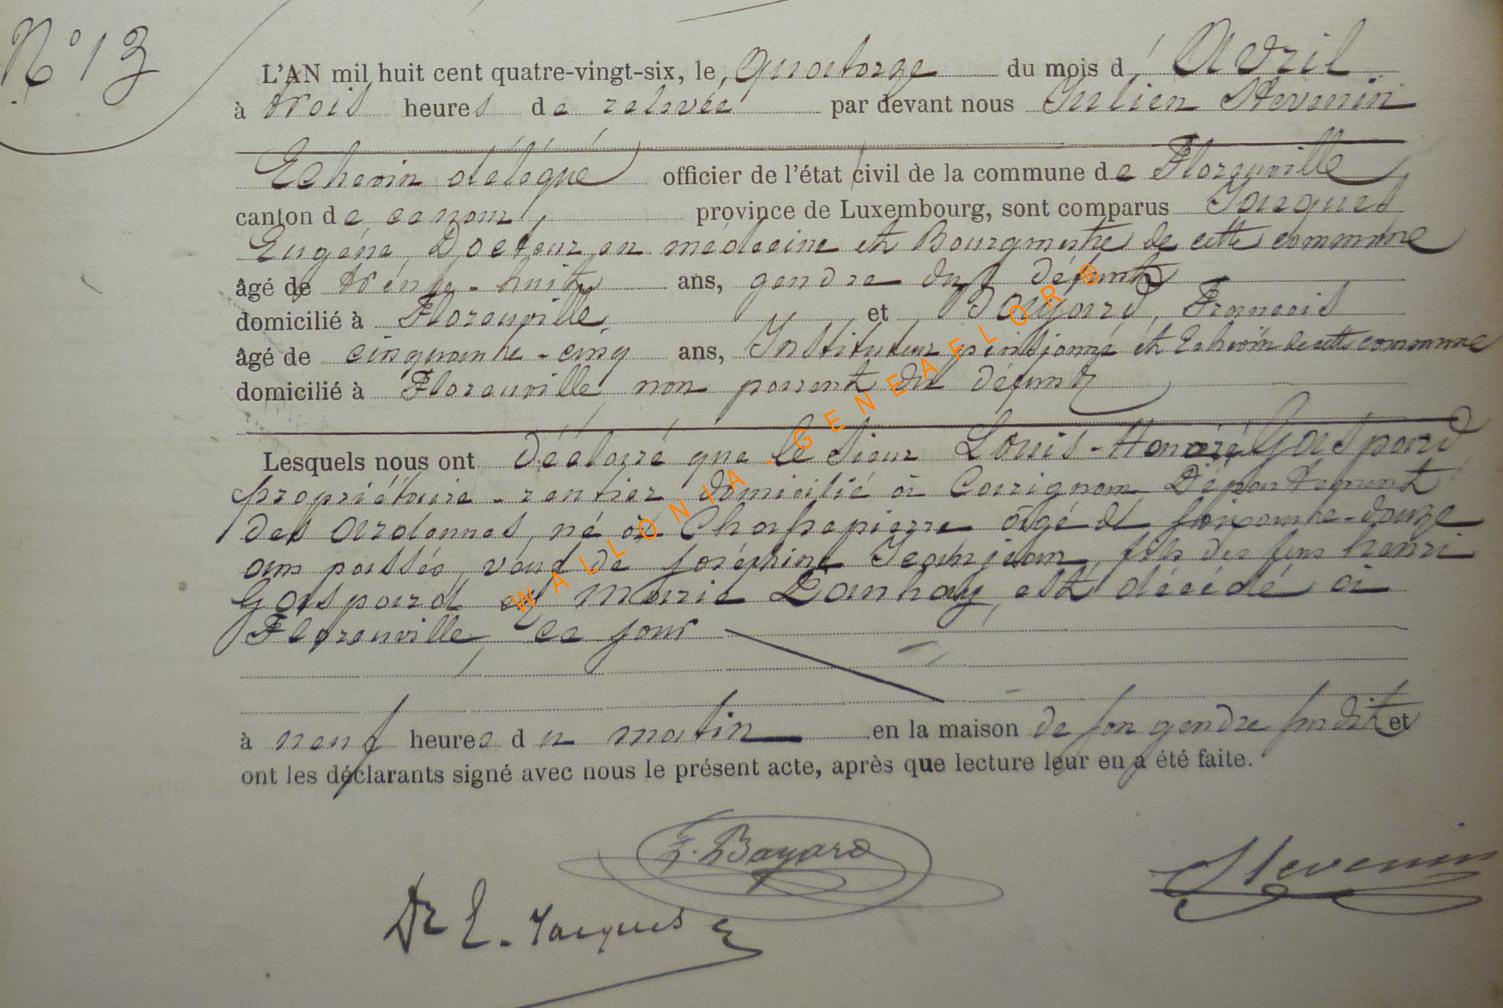 N° 13
L'AN mil huit cent quatre-vingt-six, le quatorze du mois d'Avril
à trois heures de relevée par devant nous Julien Stevenin
Echevin délégué officier de l'état civil de la commune de Florenville
canton de ce nom, province de Luxembourg, sont comparus Jacques
Eugène, Docteur en médecine et Bourgmestre de cette commune
âgé de trente-huit ans, gendre du défunt
domicilié à Florenville, et Bayard, François
âgé de cinquante-cinq ans, Instituteur pensionné et Echevin de cette commune
domicilié à Florenville, non parent du défunt
Lesquels nous ont déclaré que le Sieur Louis-Honoré Gaspard
propriétaire-rentier domicilié à Carignan Département
des Ardennes, né à Chassepierre âgé de soixante-douze
ans passés, veuf de Joséphine Jeanjean, fils des feus henri
Gaspard et Marie Lanhay, est décédé à
Florenville, ce jour
à neuf heures du matin en la maison de son gendre susdit et
ont les déclarants signé avec nous le présent acte, après que lecture leur en a été faite.
F. Bayard
Stevenin
Dr E. Jacques
WALLONIA-GENEAFLORE